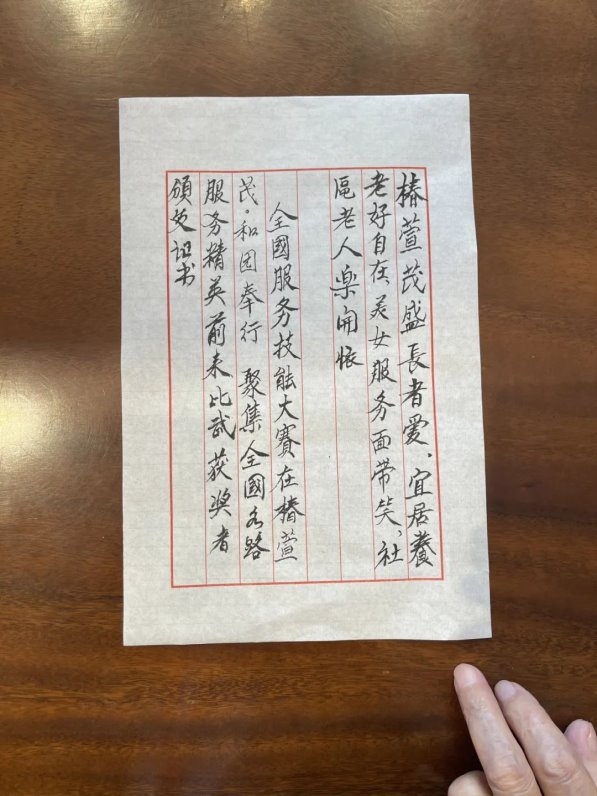 椿萱茂盛長者爱、宜居養
老好自在、美女服务面带笑、社
區老人樂開怀
全國服务技能大赛在椿萱
茂。和园奉行 聚集全國各路
服务精英前来比武获奖者
頒发证书